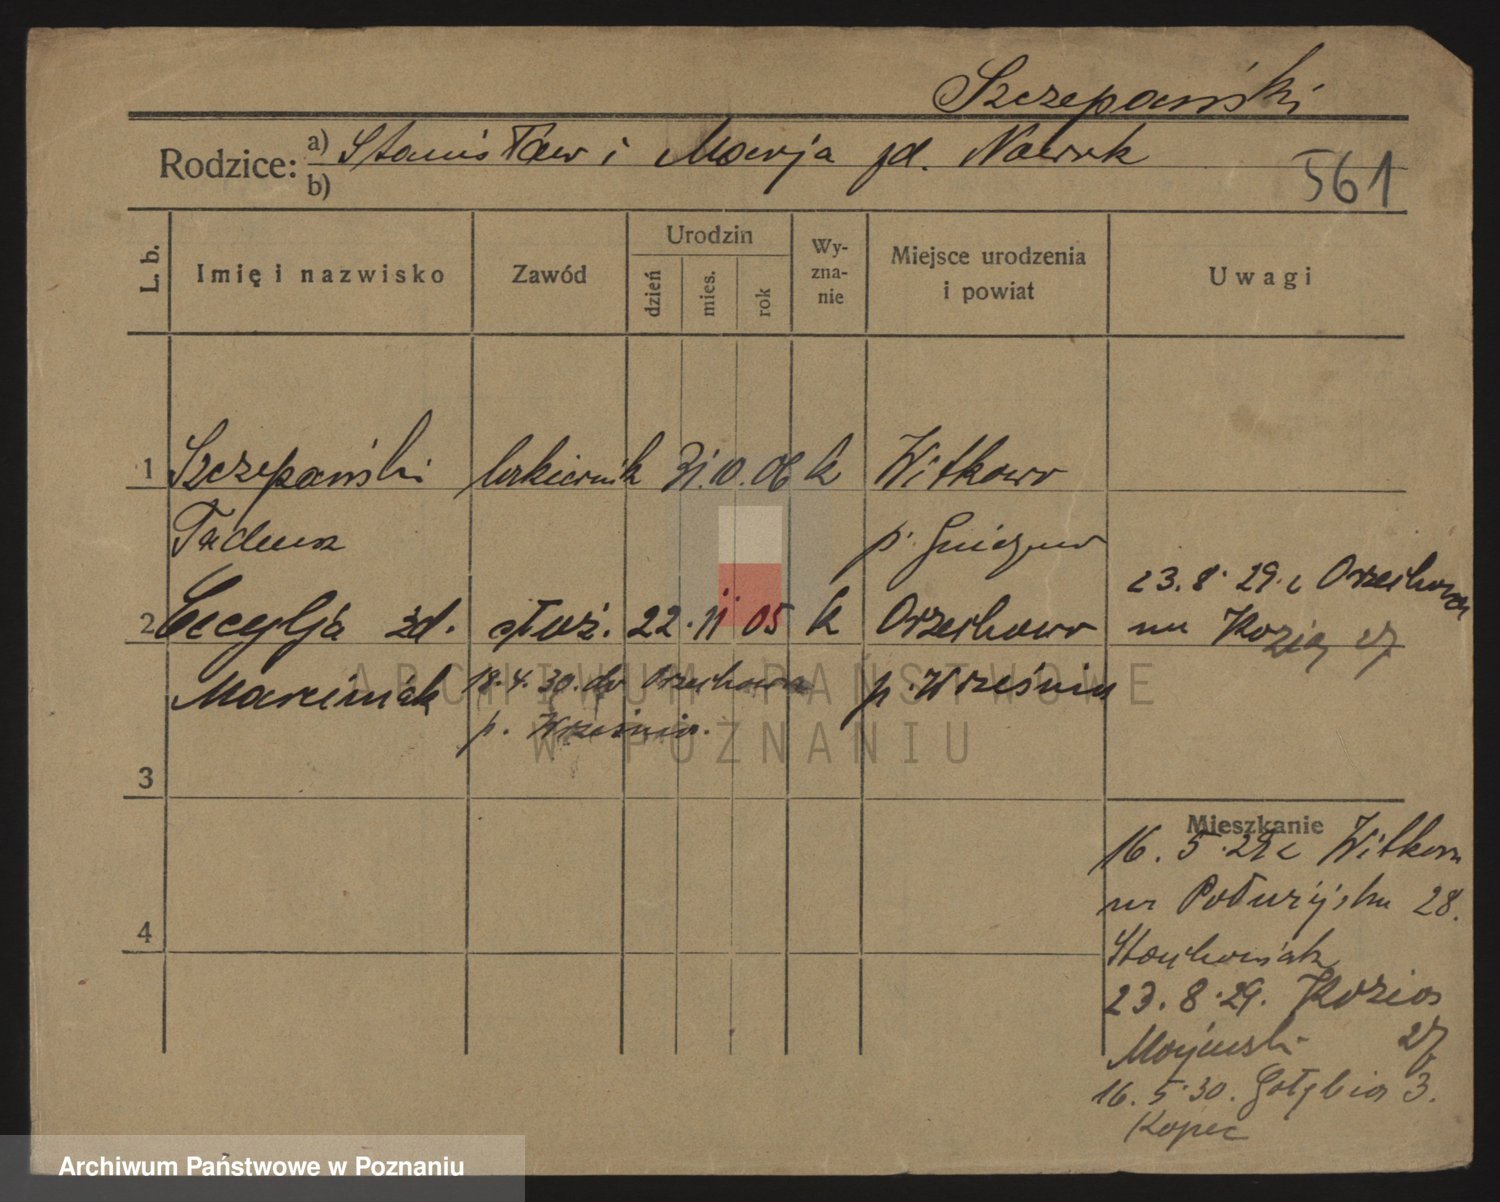 Szczepański
Rodzice: a) Stanisław i Marja zd. Nowak
b)
561
L. b.
Imię i nazwisko
Zawód
Urodzin
dzień
mies.
rok
Wy-
zna-
nie
Miejsce urodzenia
i powiat
Uwagi
1 Szczepański cukiernik 31. 10. 06 k Witkowo
Tadeusz p. Gniezno
2 Cecylja zd. służ. 22. 11 05 k Orzechowo
23. 8. 29. z Orzechowa
na Kozią 27
Marciniak 18. 4. 30. do Orzechowa p. Września
p. Września.
3
4
Mieszkanie
16. 5. 29 z Witkowa
na 28.
Stachowiak
23. 8. 29. Kozia
27
16. 5. 30. Gołębia 3.
Kopeć
ARCHIWUM PAŃSTWOWE
W POZNANIU
Archiwum Państwowe w Poznaniu